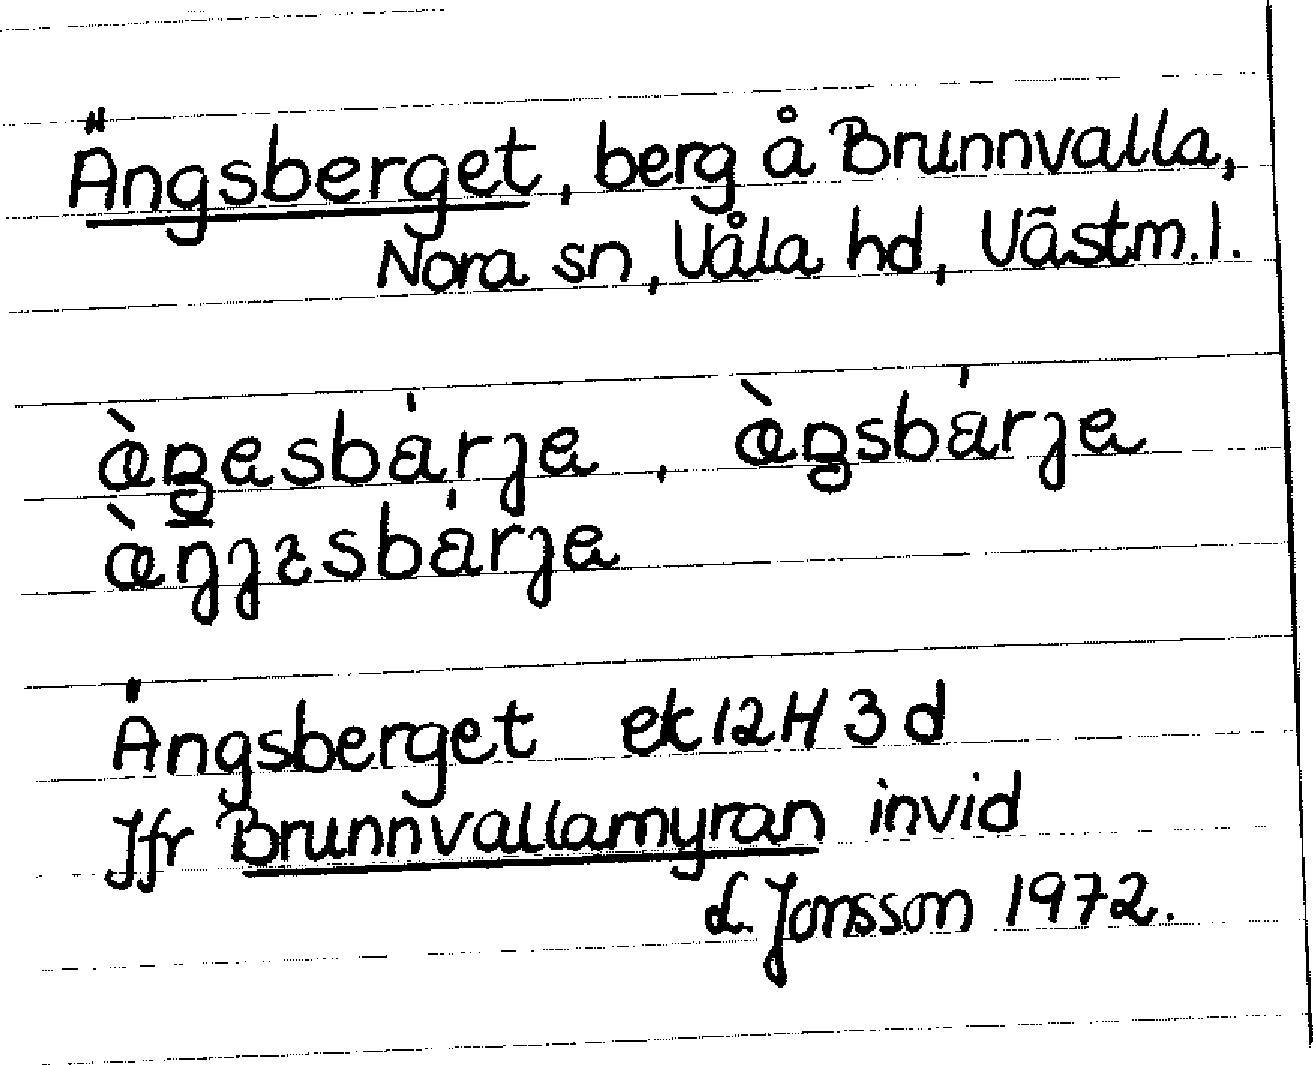 Ängsberget, berg å Brunnvalla,
Nora sn, Våla hd, Västm. l.
æ̀ŋasbárja, æ̀ŋsbárja
æ̀ŋjɿsbárja
Ängsberget ek 12H 3d
Jfr Brunnvallamyran invid
L. Jonsson 1972.